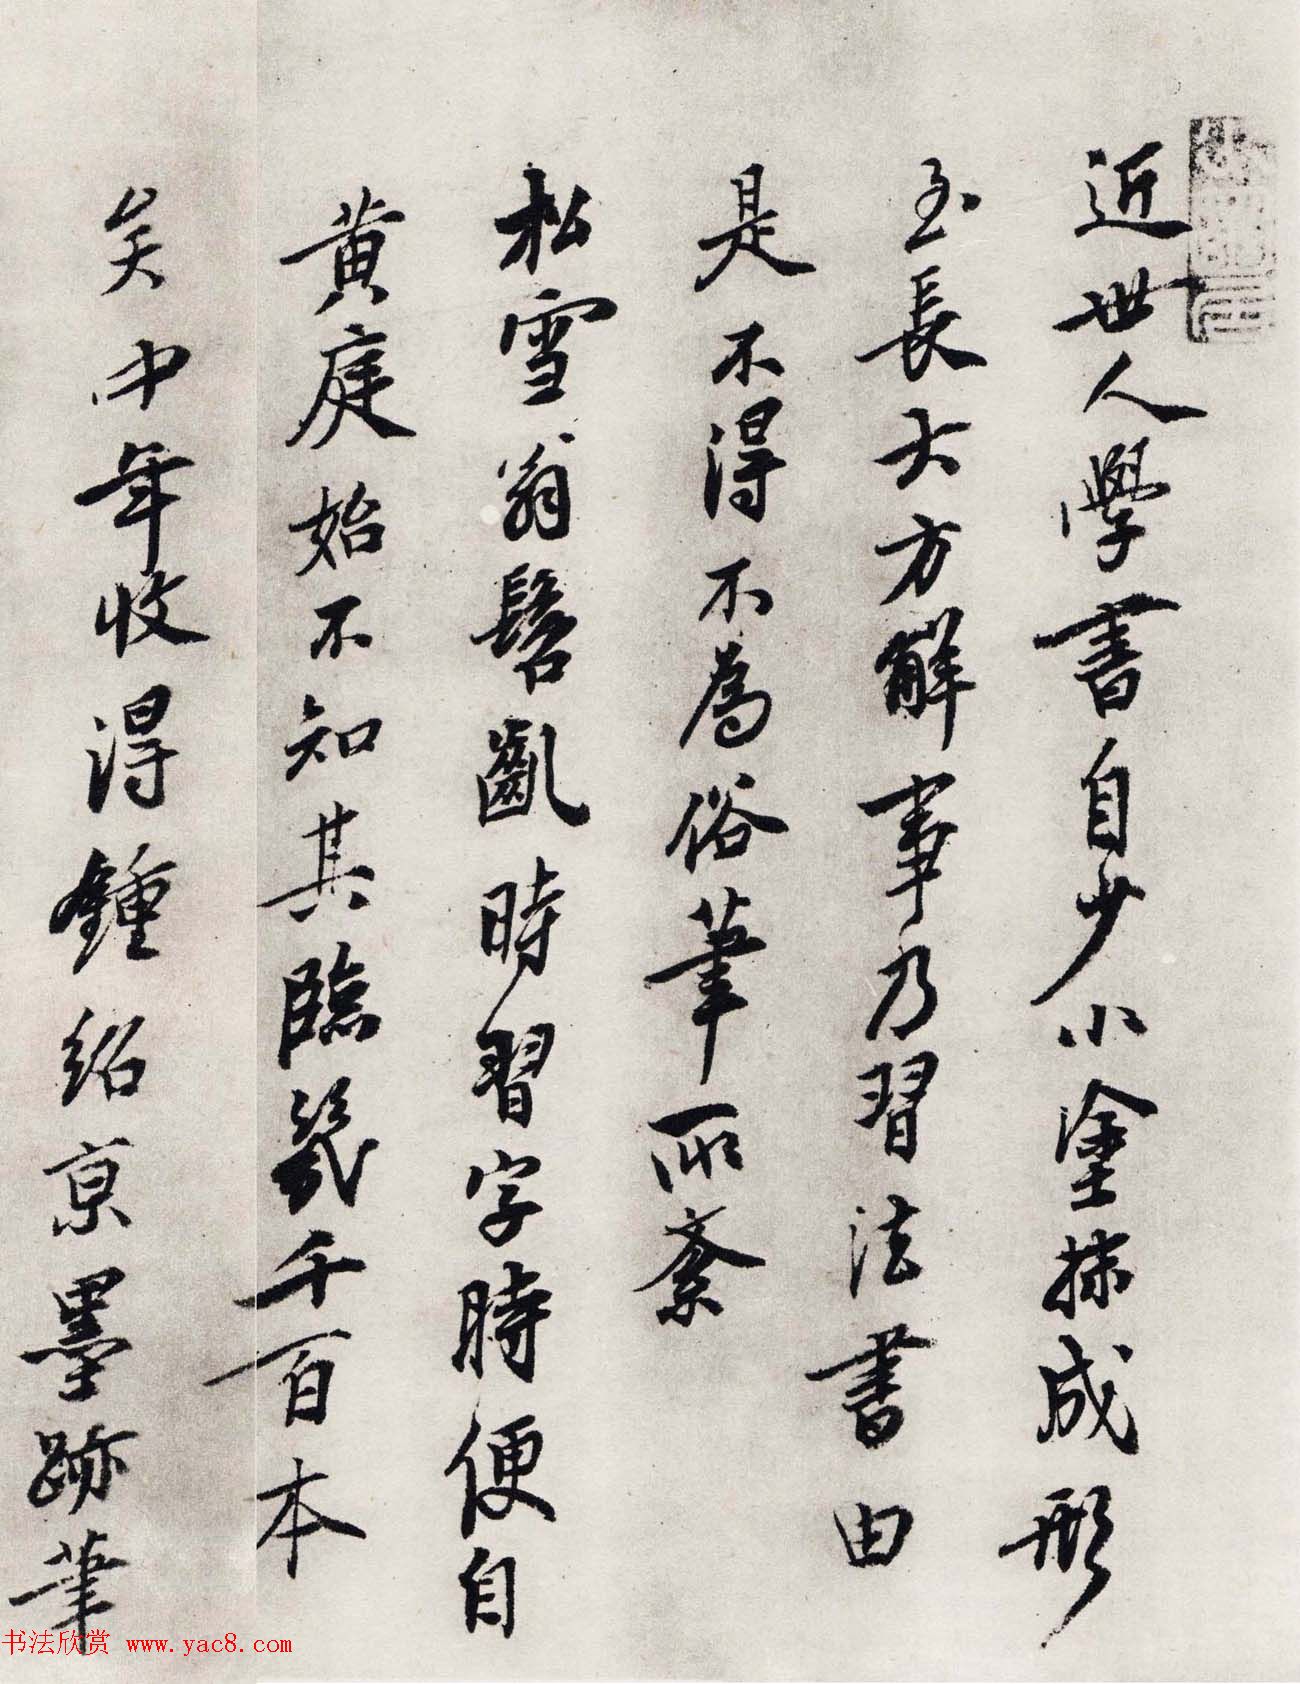 近世人學書自少小塗抹成形
至長大方解事乃習法書由
是不得不為俗筆所紊
松雪翁髫齔時習字時便自
黄庭始不知其臨幾千百本
矣中年收得鍾紹京墨跡筆
书法欣赏 www.yac8.com